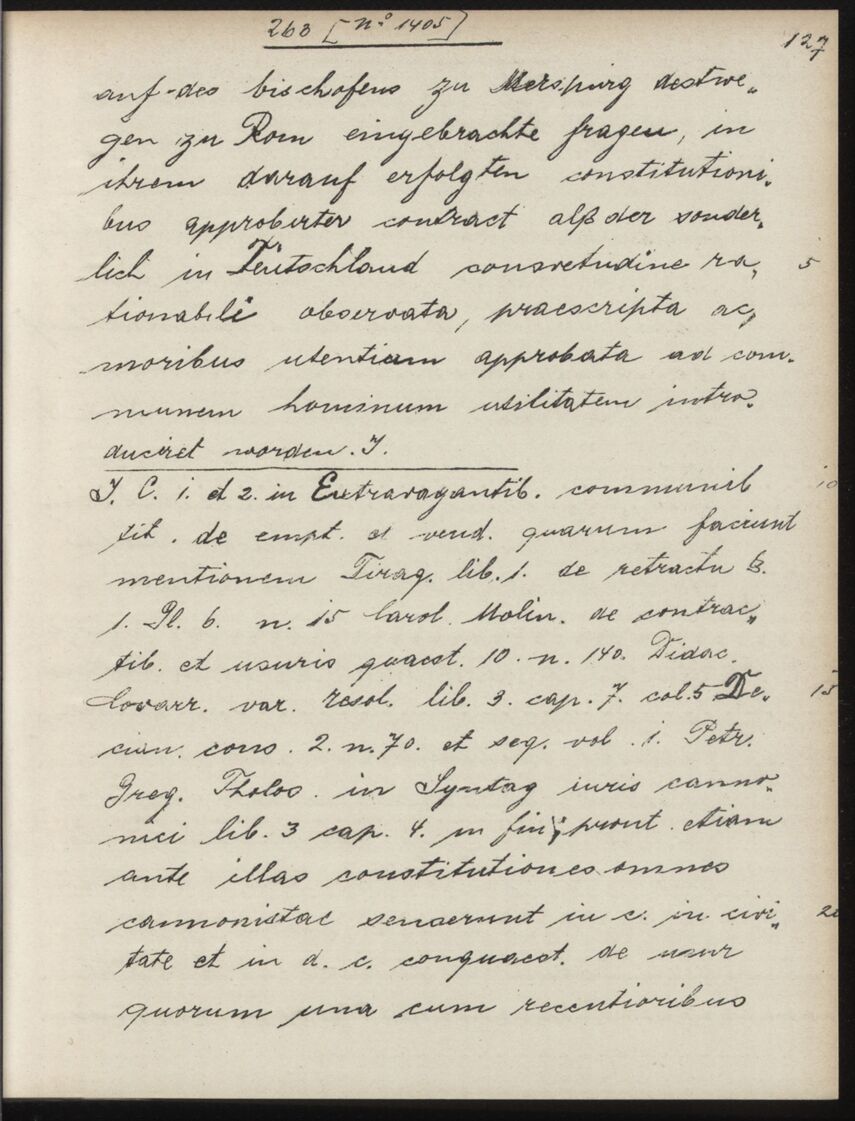 263 [nº 1405]
127
auf des bischofens zu Merspurg destwe„
gen zu Rom eingebrachte fragen, in
ihrem darauf erfolgten constitutioni„
bus approbirter contract alß der sonder„
lich in Teutschland consvetudine ra„ 5
tionabili observata, praescripta ac„
moribus utentium approbata ad com„
munem hominum utilitatem intro„
duciret worden. J.
J. C. 1. et 2. in Extravagantib. communib 10
tit. de empt. et vend. quarum faciunt
mentionem Tiraq. lib. 1. de retractu §.
1. Gl. 6. n. 15 Carol. Molin. de contrac„
tib. et usuris quaest. 10. n. 140. Didac.
Covarr. var. resol. lib. 3. cap. 7. col. 5 De„ 15
cian. cons. 2. n. 70. et seq. vol. 1. Petr.
Greg. Tholos. in Syntag iuris canno„
nici lib. 3 cap. 4. in fin; prout etiam
ante illas constitutiones omnes
cannonistae senserunt in c. in civi„ 20
tate et in d. c. conquaest. de usur
quorum una cum recentioribus